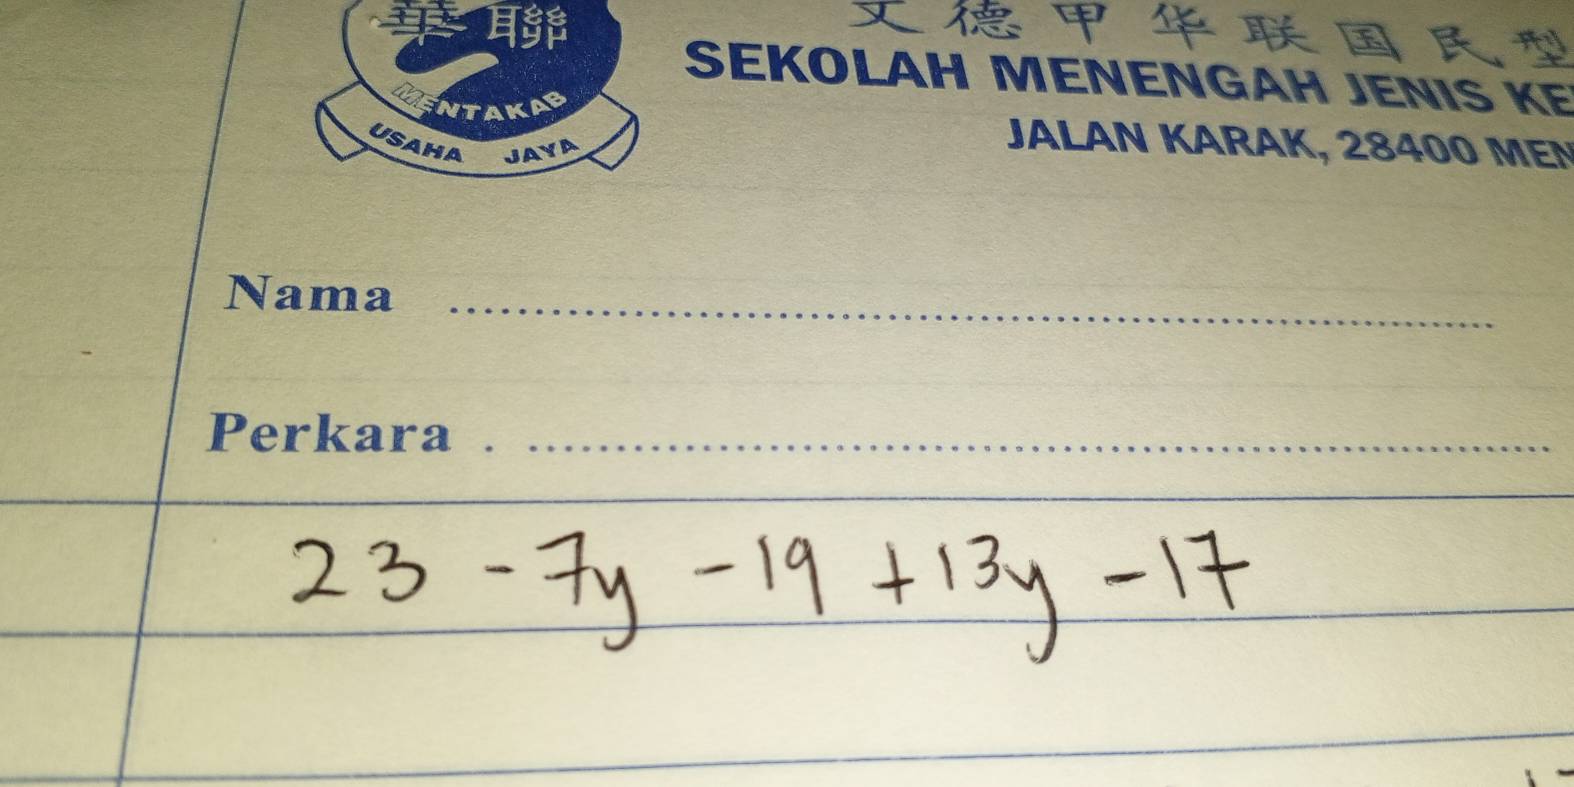 華聯
MENTAKAB
USAHA JAYA
文德甲华联国民型
SEKOLAH MENENGAH JENIS
JALAN KARAK, 28400
Nama ........................................................................
Perkara . ........................................................................
23 - 7y - 19 + 13y - 17